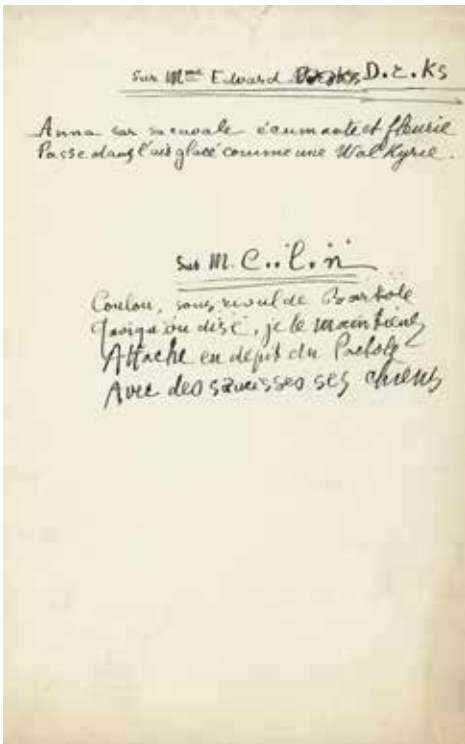 Sur Mme Edward D.e.Ks
Anna sur sa cavale écumante et fleurie
Passe dans l'air glacé comme une Walkyrie.
Sur M. C..l.n
Coulon, sans rival de Bartole
Quoiqu'on dise, je le maintiens
Attache en dépit du Pactole
Avec des saucisses ses chiens